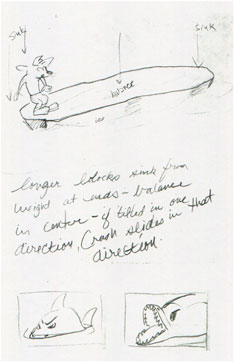 Sink
Sink
balance
ice
longer blocks sink from
weight at ends - balance
in center - if tilted in one
direction, Crash slides in that
direction.